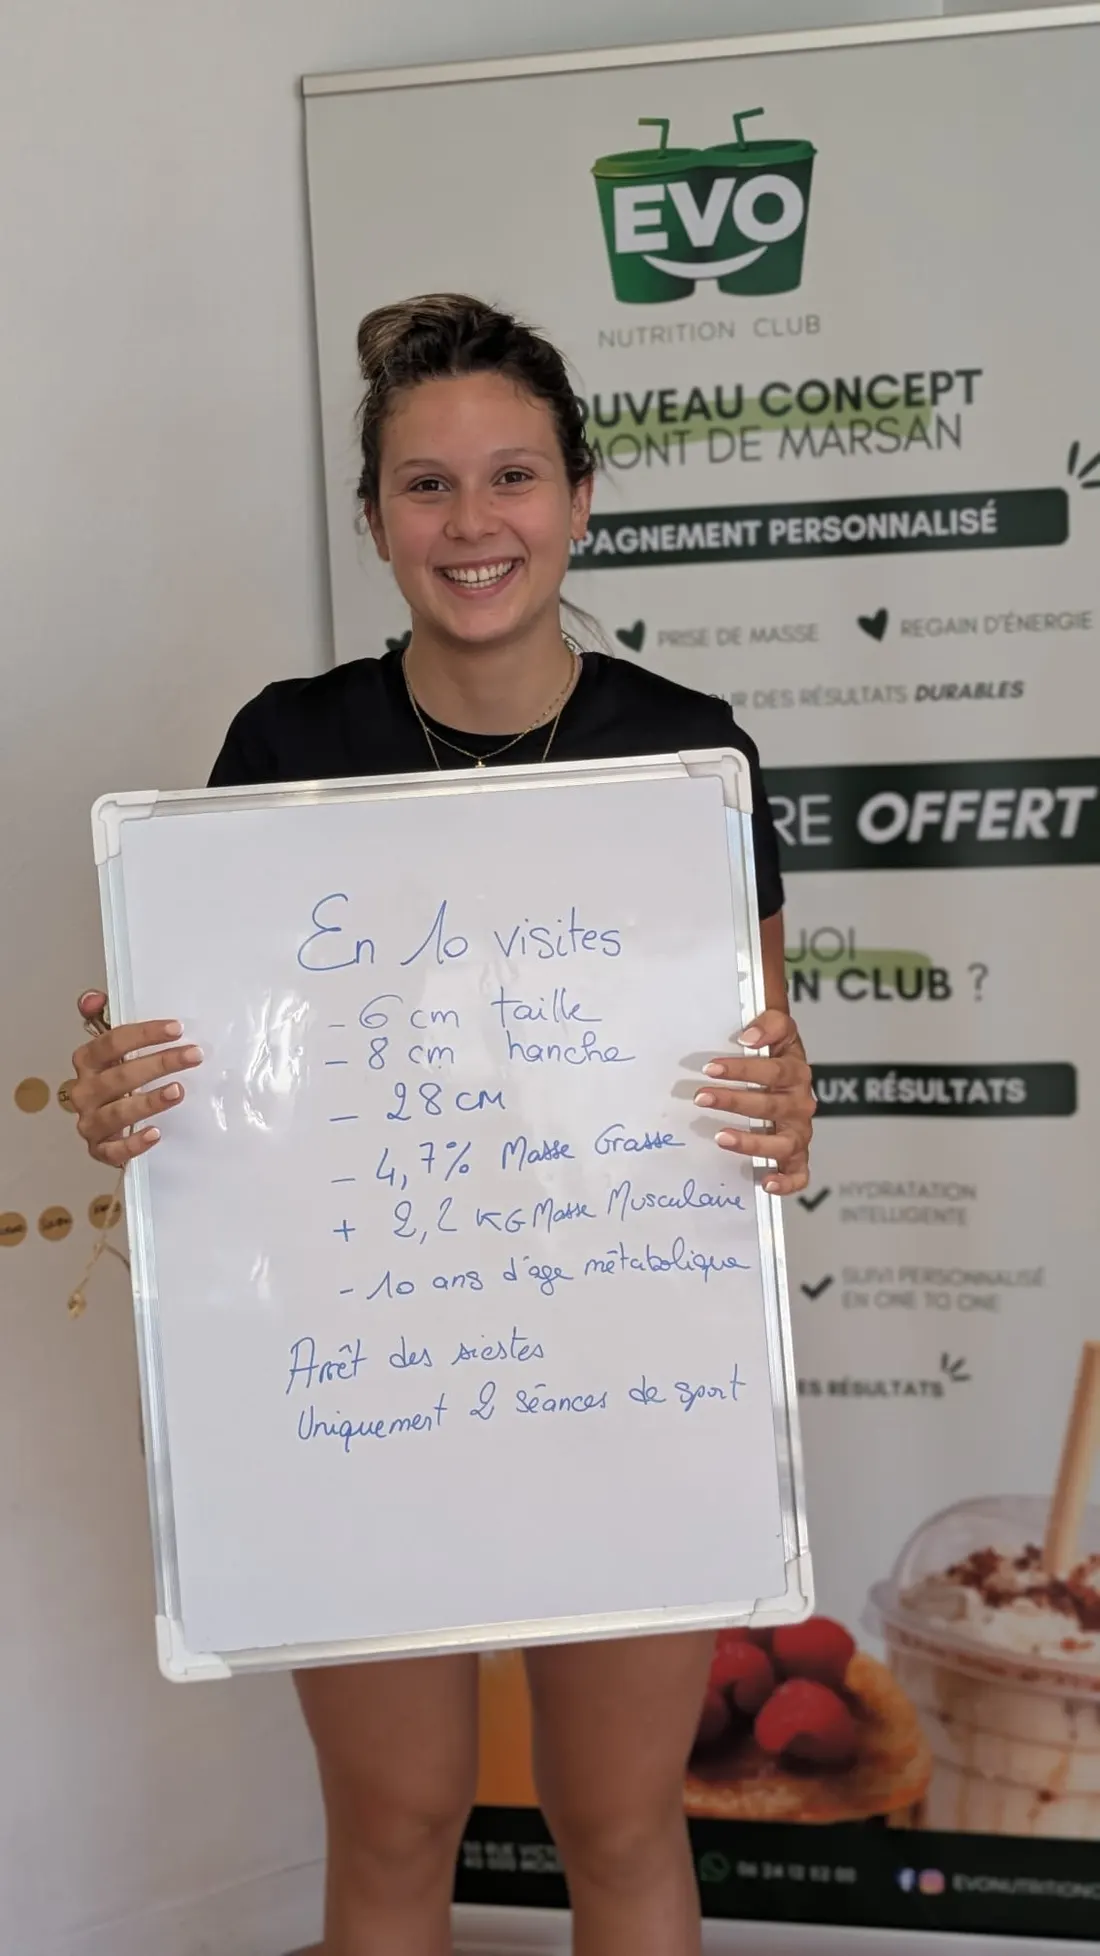 EVO
NUTRITION CLUB
OUVEAU CONCEPT
MONT DE MARSAN
PAGNEMENT PERSONNALISÉ
PRISE DE MASSE
REGAIN D'ÉNERGIE
UR DES RÉSULTATS DURABLES
RE OFFERT
UOI
N CLUB ?
UX RÉSULTATS
HYDRATATION
INTELLIGENTE
SUIVI PERSONNALISÉ
EN ONE TO ONE
ES RÉSULTATS
EVONUTRITIONC
En 10 visites
- 6 cm taille
- 8 cm hanche
- 28 CM
- 4,7% Masse Grasse
+ 2,2 KG Masse Musculaire
- 10 ans d'age métabolique
Arrêt des siestes
Uniquement 2 séances de sport